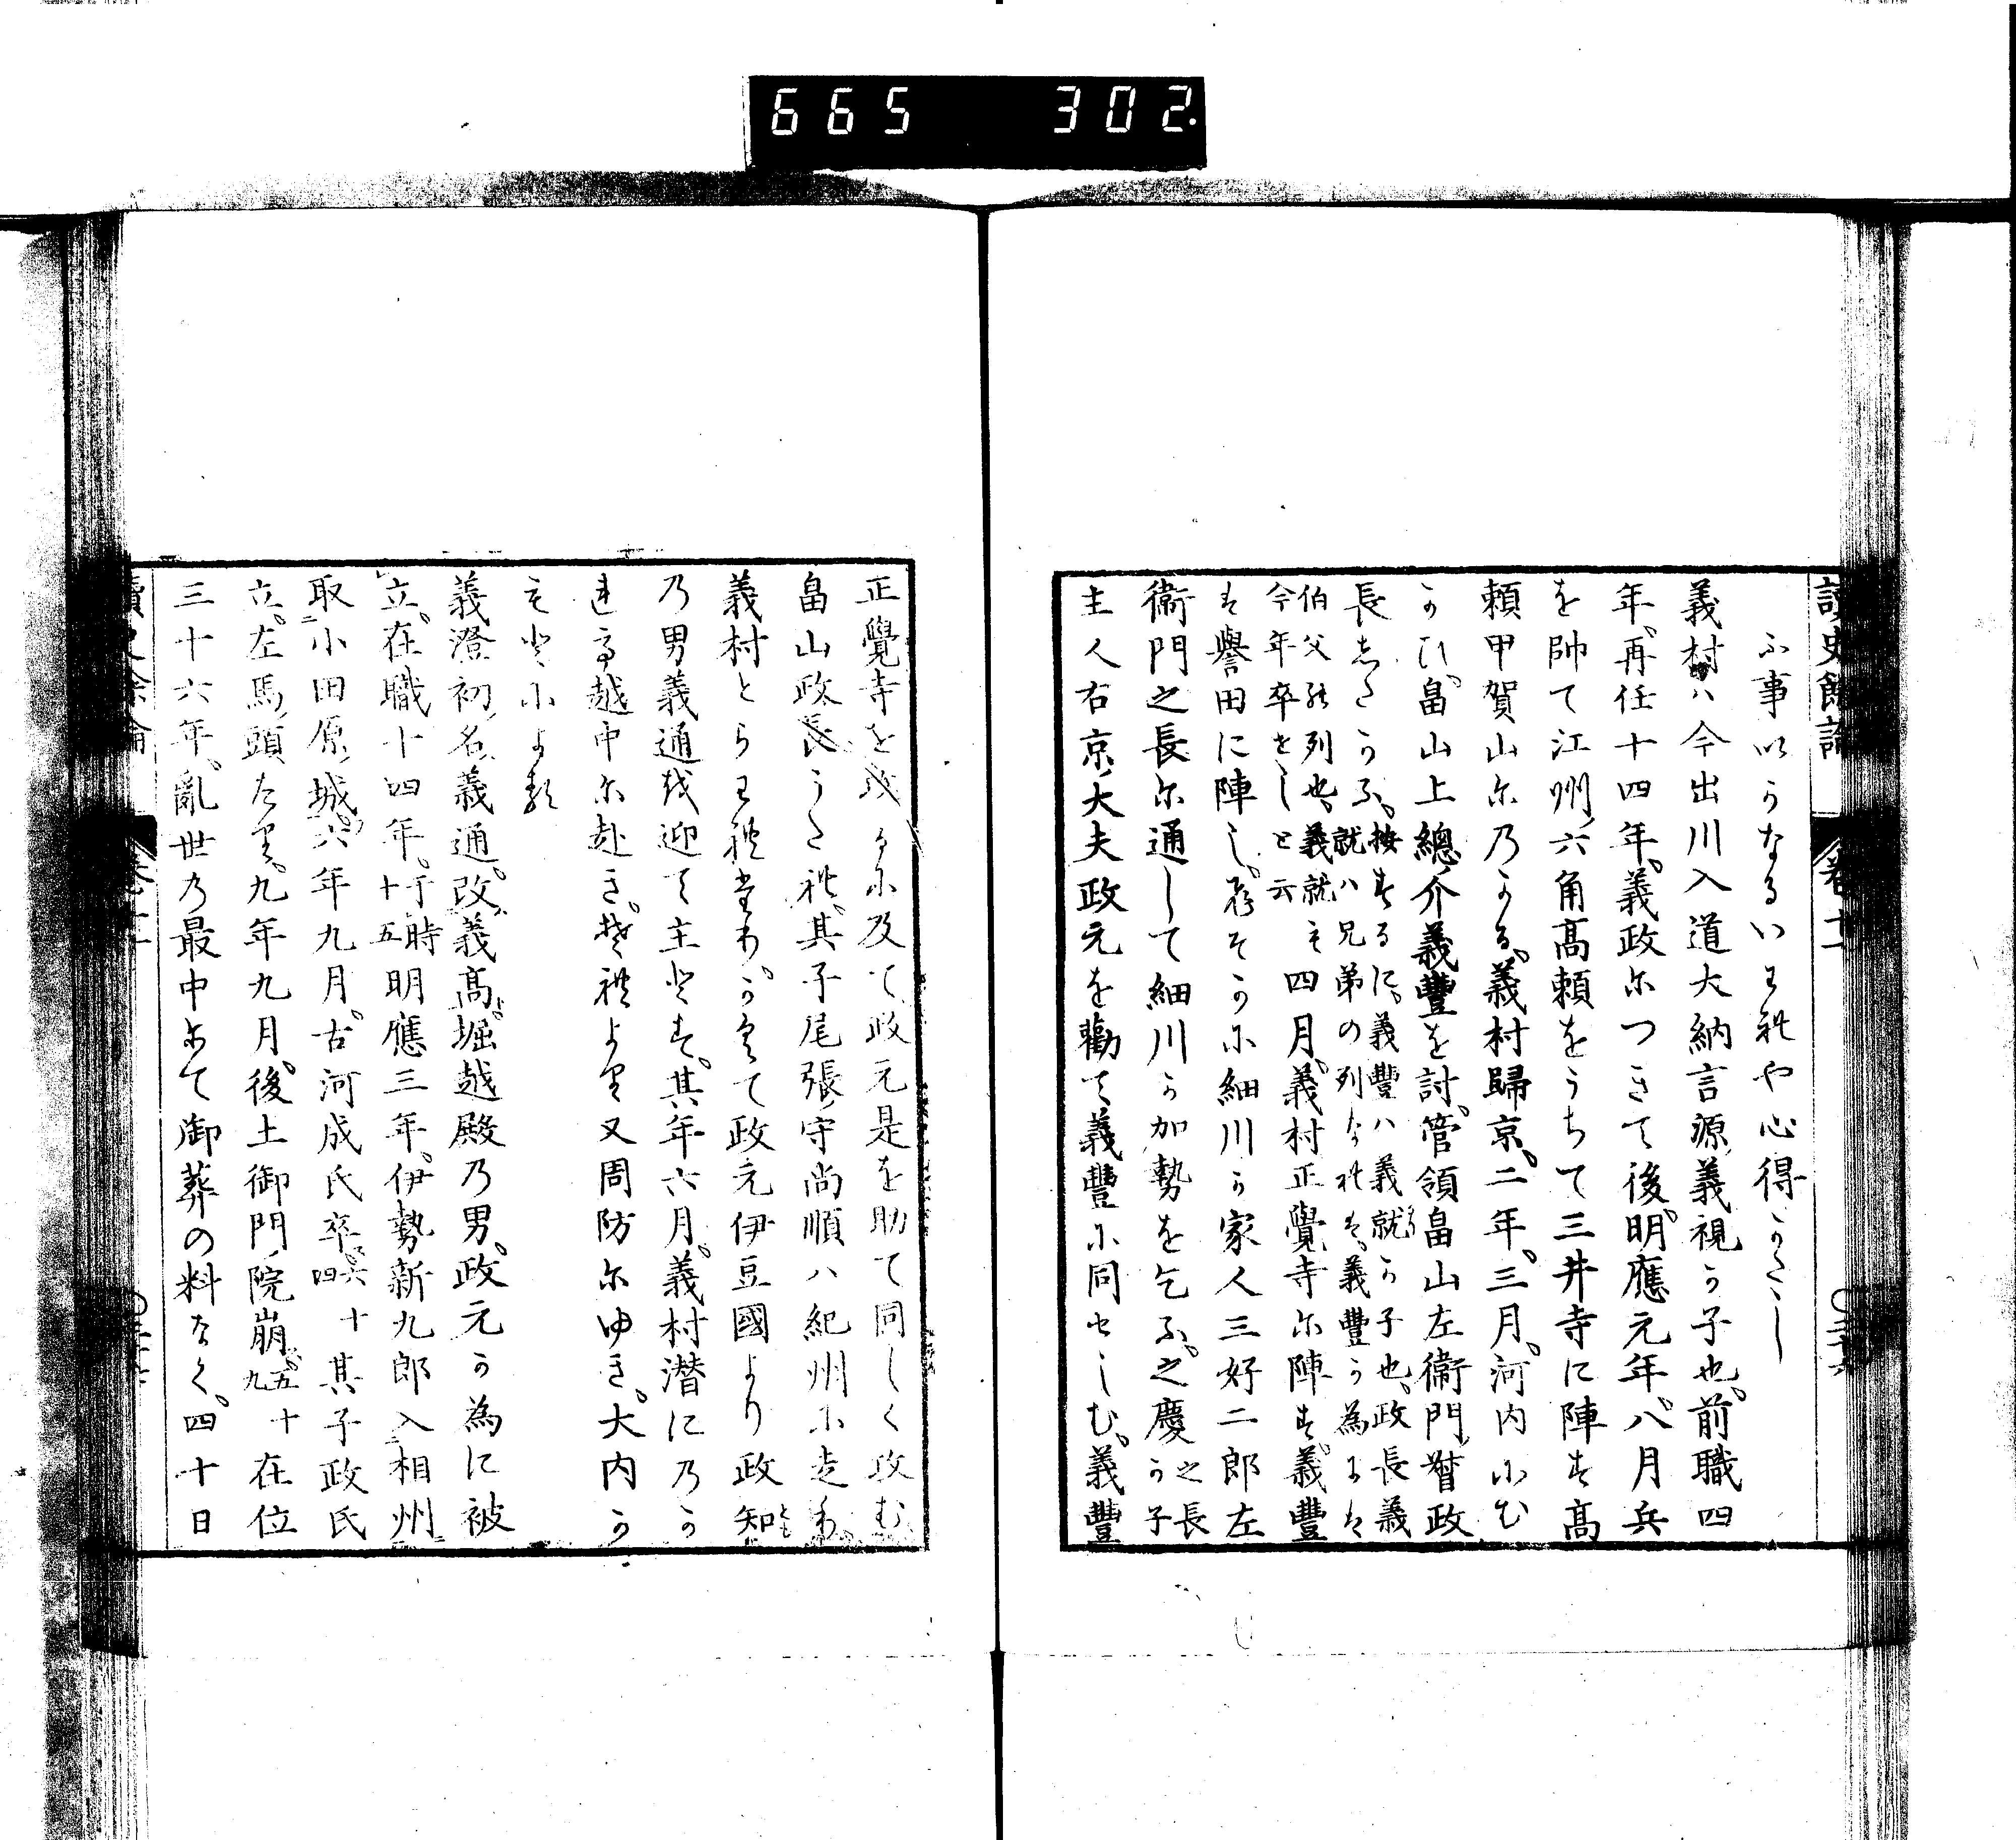 665 302.
讀史餘論 卷十一
ふ事いかなるいはれや心得かたし
義村ハ今出川入道大納言源義視か子也前職四
年再任十四年義政につきて後明應元年八月兵
を帥て江州六角高頼をうちて三井寺に陣す高
頼甲賀山にのかる義村歸京二年三月河内にむ
かひ畠山上總介義豐を討管領畠山左衛門督政
長したかふ按するに義豐ハ義就か子也政長義
就ハ兄弟の列なれは義豐か為には
伯父の列也義就も四月義村正覺寺に陣す義豐
今年卒せしと云
は譽田に陣しひそかに細川か家人三好二郎左
衛門之長に通して細川か加勢を乞ふ之慶か子
之長
主人右京大夫政元を勸て義豐に同せしむ義豐
正覺寺を攻るに及て政元是を助て同しく攻む
畠山政長うたれ其子尾張守尚順ハ紀州に走り
義村とらはれ
て政元伊豆國より政知
の男義通を迎て主とす其年六月義村潜にのか
れ出越中に赴きそれより又周防にゆき大内か
もとによる
義澄初名義通改義高堀越殿の男政元か為に被
立在職十四年于時十五明應三年伊勢新九郎入相州
取小田原城六年九月古河成氏卒六十四其子政氏
立左馬頭たり九年九月後土御門院崩五十九在位
三十六年亂世の最中にて御葬の料なく四十日